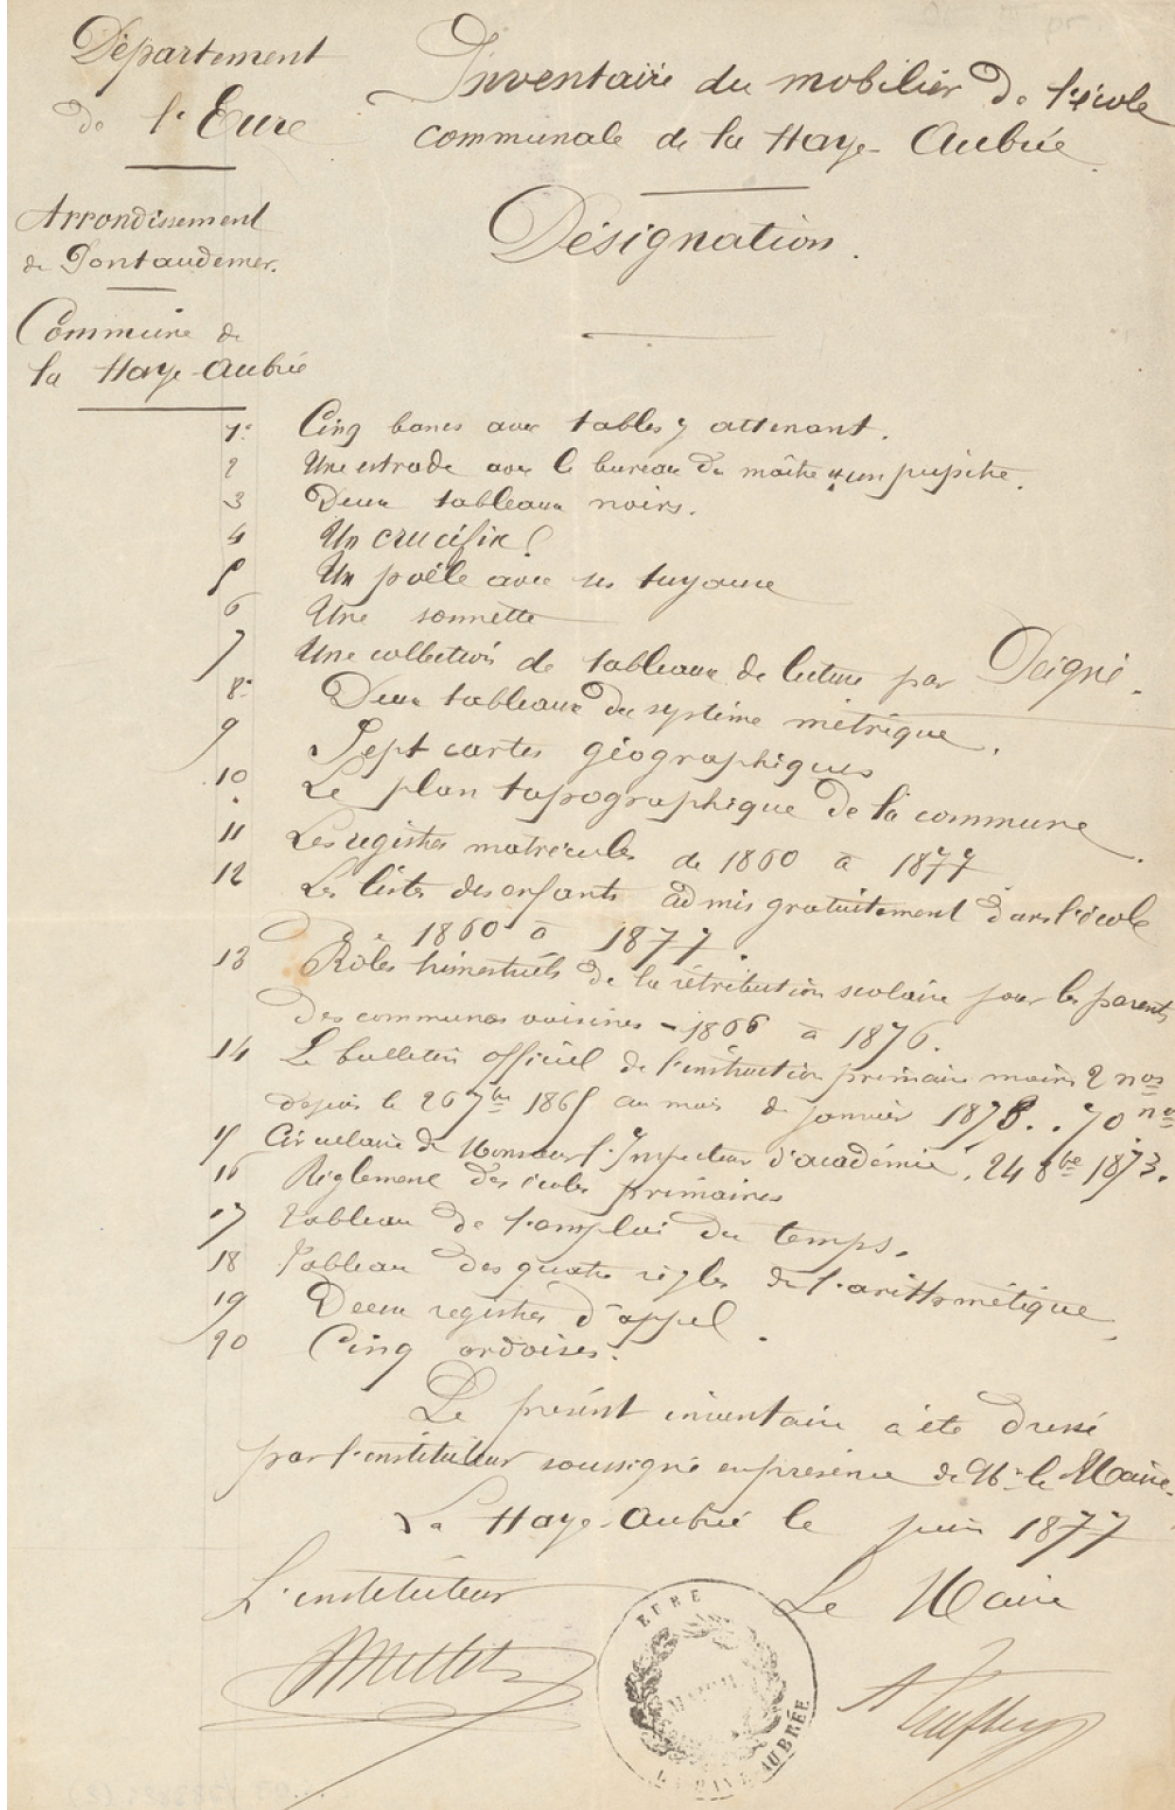 Département
de l'Eure
Inventaire du mobilier de l'école
communale de la Haye-Aubrée.
Arrondissement
de Pontaudemer.
Désignation.
Commune de
la Haye-Aubrée
1° Cinq bancs avec tables y attenant.
2 Une estrade avec le bureau du maître & un pupitre.
3 Deux tableaux noirs.
4 Un crucifix
5 Un poële avec ses tuyaux
6 Une sonnette
7 Une collection de tableaux de lecture par Peigné.
8° Deux tableaux du système métrique.
9 Sept cartes géographiques
10 Le plan topographique de la commune.
11 Les registres matricules de 1860 à 1877
12 Les listes des enfants admis gratuitement dans l'école
de 1860 à 1877.
13 Rôles trimestriels de la rétribution scolaire pour les parents
des communes voisines - 1866 à 1876.
14 Le bulletin officiel de l'instruction primaire moins 2 nos
depuis le 26 7bre 1865 au mois de janvier 1878.. 70 nos
15 Circulaire de Monsieur l'Inspecteur d'académie. 24 8bre 1873.
16 Règlement des écoles primaires
17 Tableau de l'emploi du temps.
18 Tableau des quatre règles de l'arithmétique.
19 Deux registres d'appel.
20 Cinq ardoises.
Le présent inventaire a été dressé
par l'instituteur soussigné en présence de Mr le Maire.
La Haye-Aubrée le juin 1877
L'instituteur
Le Maire
EURE
MAIRIE
AUBRÉE